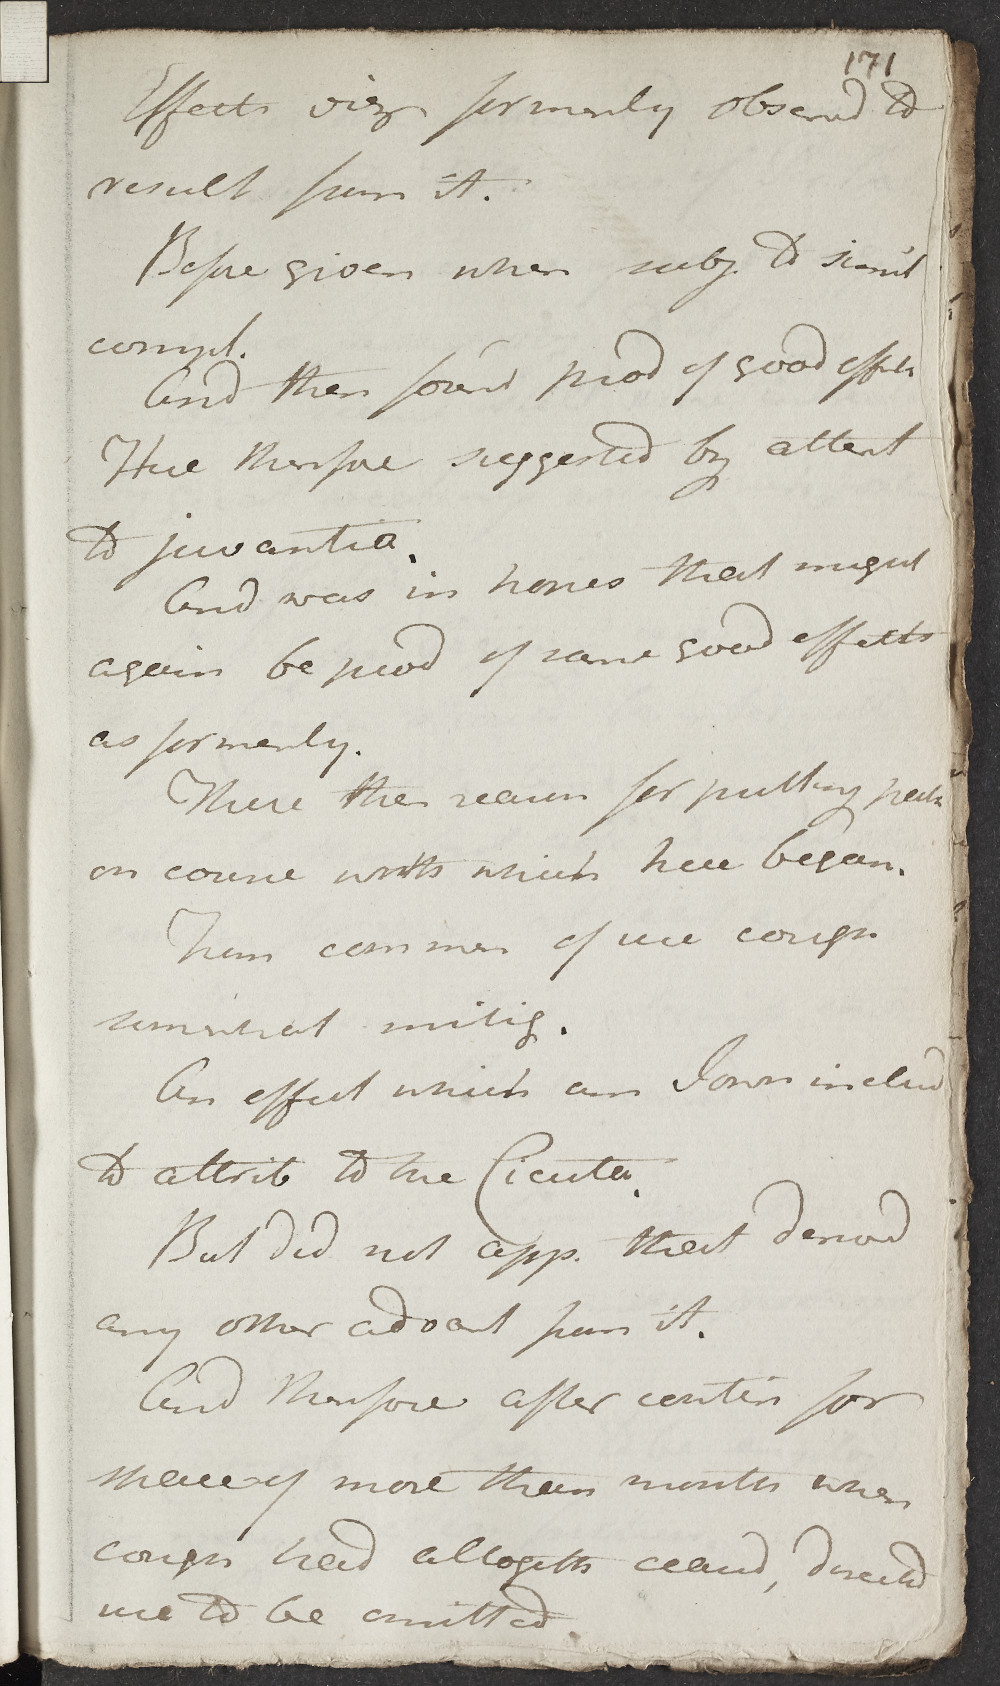 171
Effects viz formerly observd to
result from it.
Before given when subj. to simil
compl.
And then found prod of good effects
Here therefore suggested by attent
to juvantia.
And was in hopes that might
again be prod of same good effects
as formerly.
These then reasons for putting
on course with which here began.
From commen of use cough
somewhat mitig.
An effect which am I own inclind
to attrib to the Cicuta.
But did not app. that derivd
any other advant from it.
And therefore after contin for
space of more than month when
cough had altogeth ceasd, directd
use to be omitted.